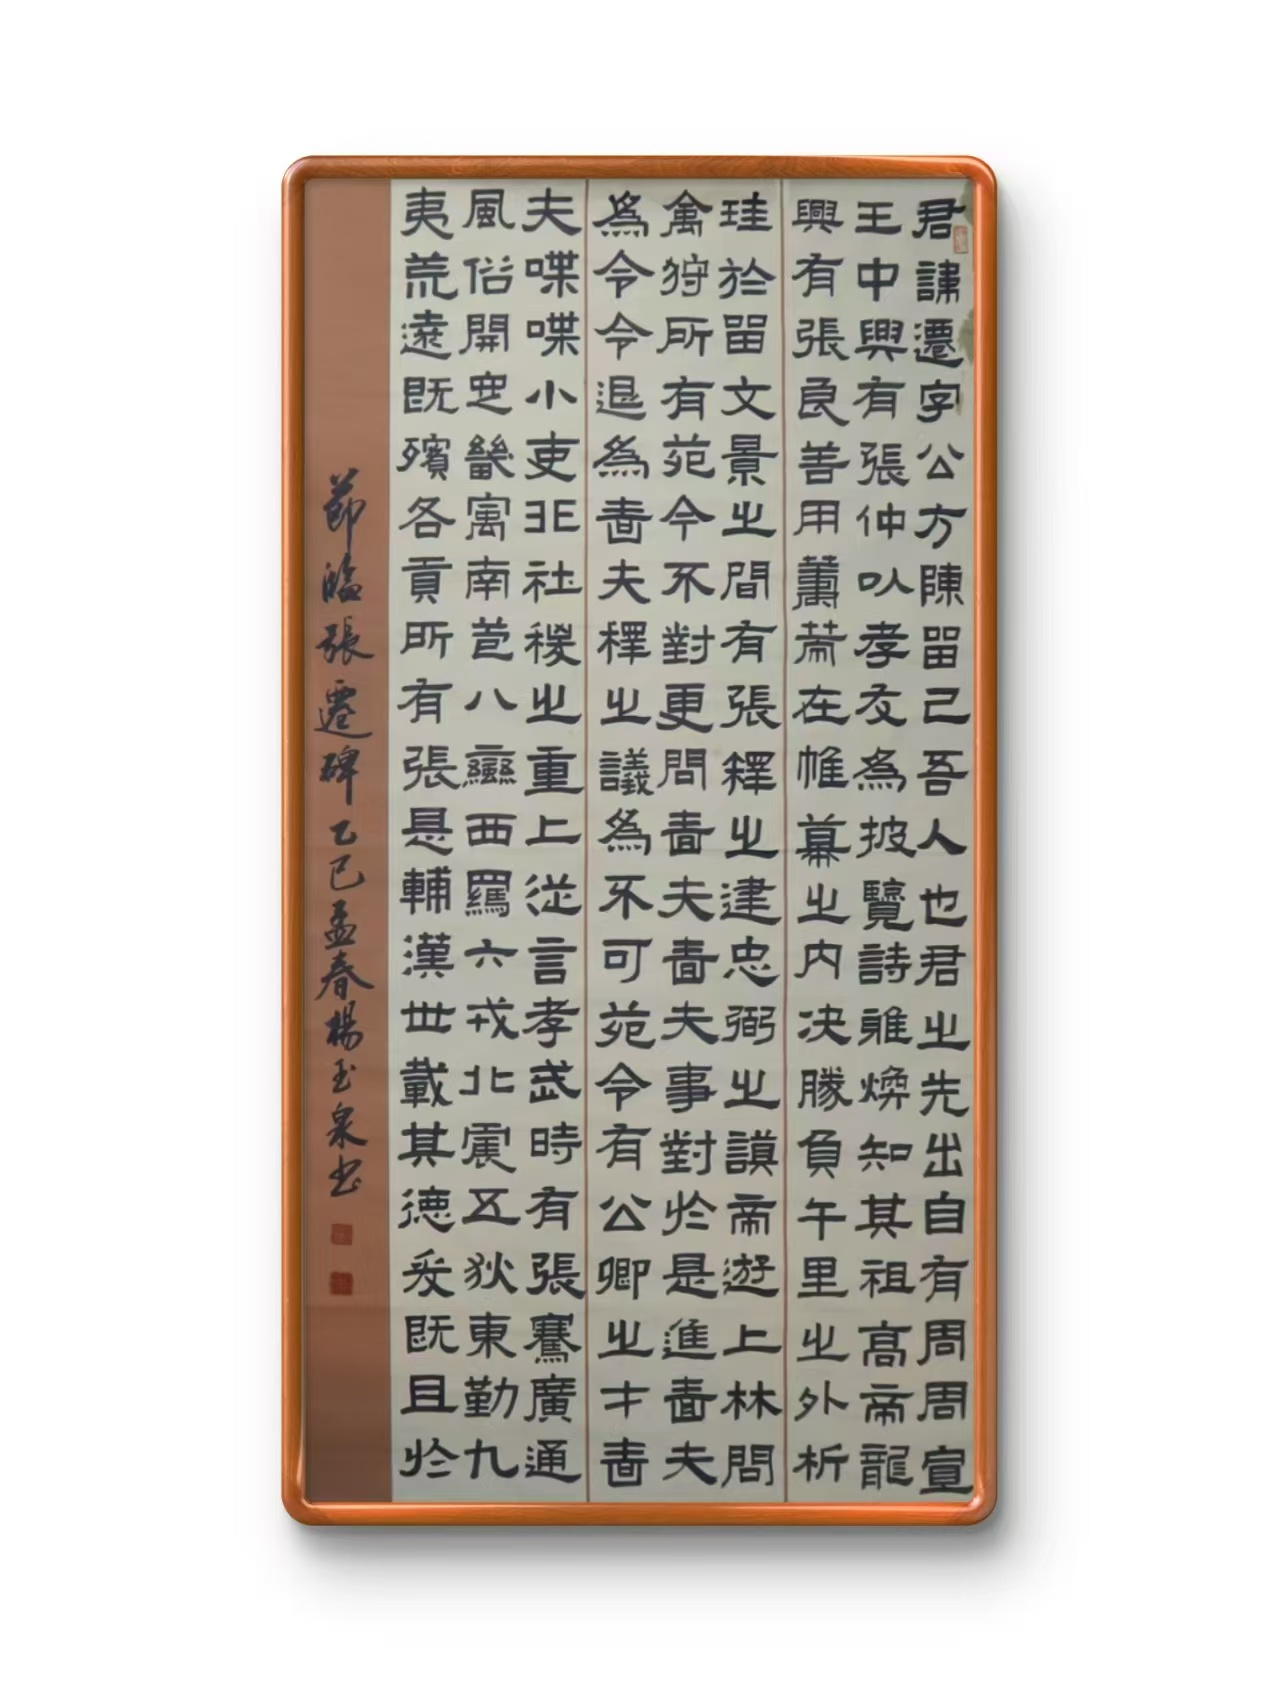 君諱遷字公方陳留己吾人也君之先出自有周周宣
王中興有張仲以孝友為披覽詩雅煥知其祖高帝龍
興有張良善用籌策在帷幕之内决勝負千里之外析
珪於留文景之間有張釋之建忠弼之謨帝遊上林問
禽狩所有苑令不對更問嗇夫嗇夫事對於是進嗇夫
為令令退為嗇夫釋之議為不可苑令有公卿之才嗇
夫喋喋小吏非社稷之重上從言孝武時有張騫廣通
風俗開定畿寓南苞八蠻西羈六戎北震五狄東勤九
夷荒遠既殯各貢所有張是輔漢世載其德爰既且於
節臨張遷碑乙巳孟春楊玉泉书